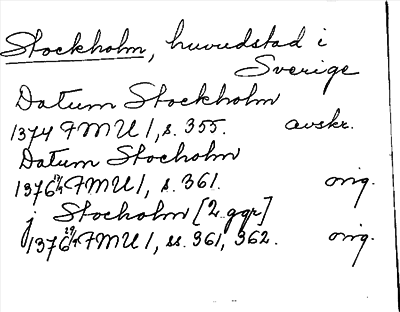 Stockholm, huvudstad i
Sverige
Datum Stockholm
1374 FMU 1, s. 355. avskr.
Datum Stocholm
1376 FMU 1, s. 361. orig.
j Stocholm [2 ggr]
1376 FMU 1, ss. 361, 362. orig.